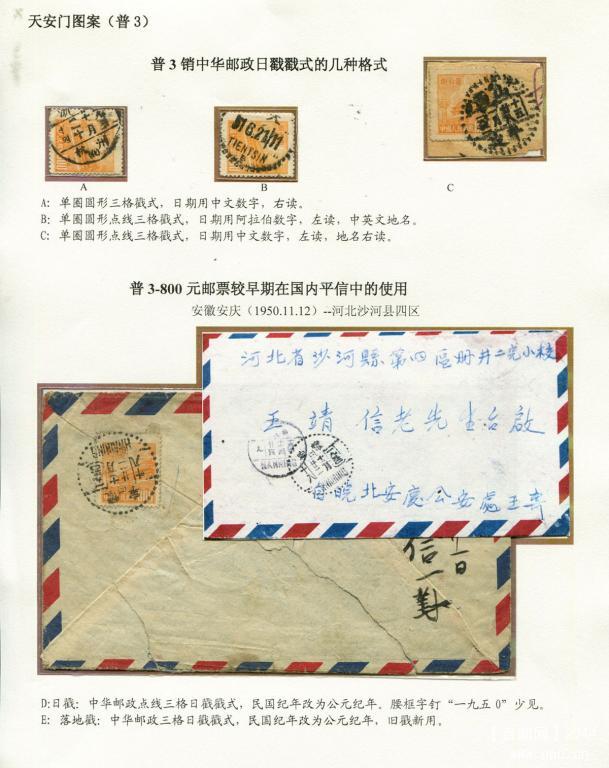 天安门图案（普3）
普3销中华邮政日戳戳式的几种格式
TIENTSIN
A
B
C
A: 单圈圆形三格戳式，日期用中文数字，右读。
B: 单圈圆形点线三格戳式，日期用阿拉伯数字，左读，中英文地名。
C: 单圈圆形点线三格戳式，日期用中文数字，左读，地名右读。
普3-800元邮票较早期在国内平信中的使用
安徽安庆（1950.11.12）--河北沙河县四区
河北省沙河縣第四區册井二完小校
王靖信老先生台啟
北安慶公安處王
日
信一
D:日戳：中华邮政点线三格日戳戳式，民国纪年改为公元纪年。腰框字钉“一九五0”少见。
E：落地戳：中华邮政三格日戳戳式，民国纪年改为公元纪年，旧戳新用。